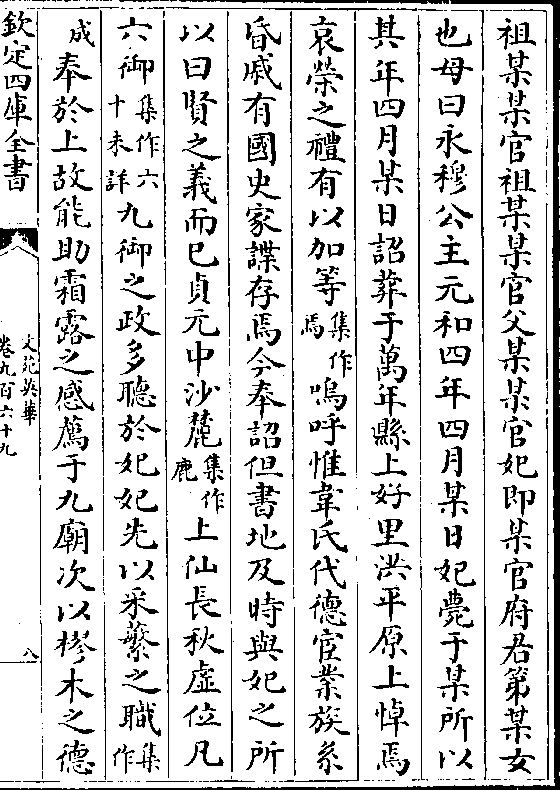 祖某某官祖某某官父某某官妃即某官府君第某女
也母曰永穆公主元和四年四月某日妃薨于某所以
其年四月某日詔葬于萬年縣上好里洪平原上悼焉
哀榮之禮有以加等集作焉嗚呼惟韋氏代德宦業族系
昏戚有國史家諜存焉今奉詔但書地及時與妃之所
以曰賢之義而已貞元中沙麓集作鹿上仙長秋虛位凡
六御集作六十未詳九御之政多聽於妃妃先以采蘩之職集作
成奉於上故能助霜露之感薦于九廟次以樛木之德
欽定四庫全書
文苑英華
卷九百六十九
八